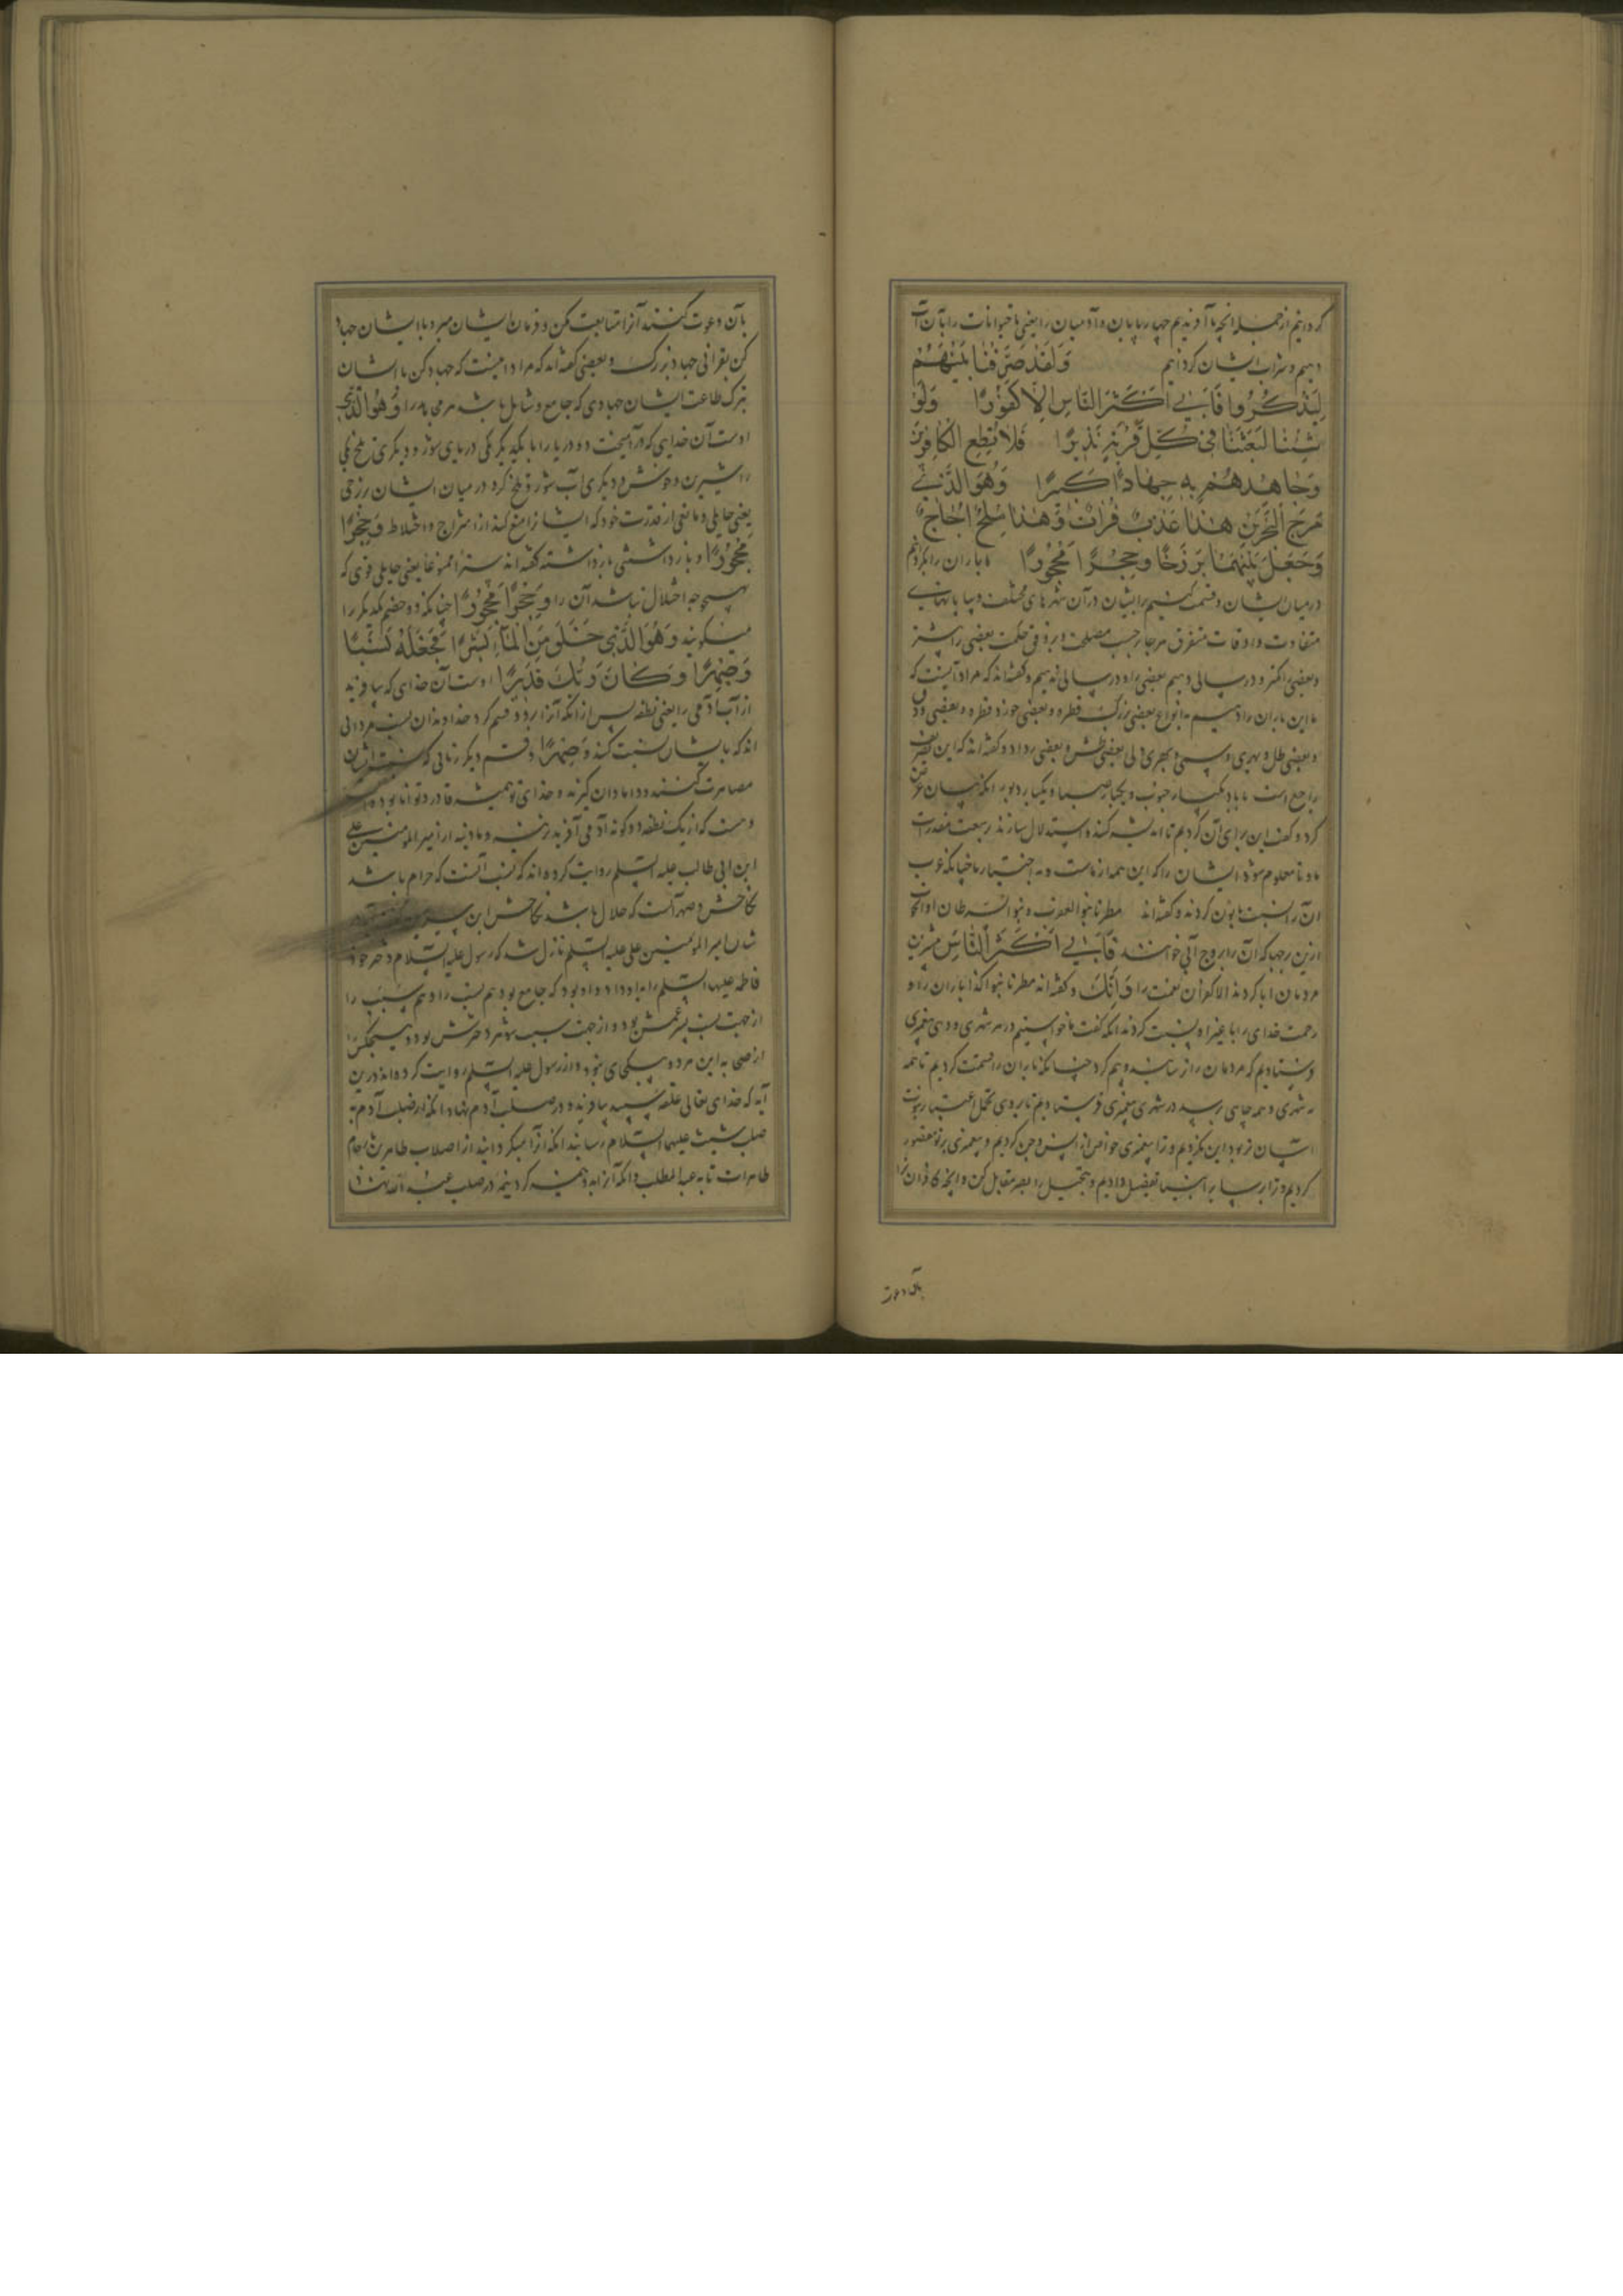 کردانیم از جمله آنچه ما آفریدیم چهارپایان و آدمیان را یعنی تا حیوانات را بآن آب
دهیم و شراب ایشان کردانیم وَلَقَدْ صَرَّفْنَا بَيْنَهُمْ
لِيَذَّكَّرُوا فَأَبَى أَكْثَرُ النَّاسِ إِلَّا كُفُورًا وَلَوْ
شِئْنَا لَبَعَثْنَا فِي كُلِّ قَرْيَةٍ نَذِيرًا فَلَا تُطِعِ الْكَافِرِينَ
وَجَاهِدْهُمْ بِهِ جِهَادًا كَبِيرًا وَهُوَ الَّذِي
مَرَجَ الْبَحْرَيْنِ هَذَا عَذْبٌ فُرَاتٌ وَهَذَا مِلْحٌ أُجَاجٌ
وَجَعَلَ بَيْنَهُمَا بَرْزَخًا وَحِجْرًا مَحْجُورًا ما باران را بکردانیم
درمیان ایشان و قسمت کنیم برایشان در آن شهرهای مختلف و بیابانهای
متفاوت و اوقات متفرق هرجا بر حسب مصلحت و بر وفق حکمت بعضی را بیشتر
و بعضی را کمتر و در سالی دهیم بعضی را و در سالی ندهیم و کفته‌اند که مراد آنست که
ما این باران را دهیم به انواع بعضی بزرک قطره و بعضی خورد قطره و بعضی
و بعضی طل و بعضی طش و بعضی رذاذ و کفته‌اند که این تصریف
راجع است با باد یکبار جنوب و یکبار صبا و یکبار دبور آنکه بیان غرض
کرد و کفت این برای آن کردیم تا اندیشه کنند و استدلال سازند بر سعت مقدرت
ما و تا معلوم شود ایشان را که این همه از ماست و به اختیار ما چنانکه عرب
آن را نسبت با نون کردند و کفته‌اند مطرنا بنوء العقرب و بنوء السرطان
ازین برجها که آن را بروج آبی خوانند فَأَبَى أَكْثَرُ النَّاسِ بیشترین
مردمان ابا کردند الا کفران نعمت را و کفته‌اند مطرنا بنوء کذا باران را و
رحمت خدای را با غیر او نسبت کردند آنکه کفت ما خواستیم در هر شهری و دهی پیغمبری
فرستادیم که مردمان را ترساننده و بیم کرد چنانکه باران را قسمت کردیم تا همه
به شهری و همه جای برسد در شهری پیغمبری فرستادیم تا بروی تحمل اعتبار نبوت
آسان تر بود این نکردیم و ترا پیغمبری خواص از انس و جن کردیم و پیغمبری برتو مقصور
کردیم و ترا بر سایر انبیا تفضیل دادیم و تحمیل را بصبر مقابل کن و آنچه کافران ترا
بآن دعوت
بآن دعوت کنند آنرا متابعت مکن و فرمان ایشان مبر و با ایشان جهاد
کن بقرآنی جهاد بزرک و بعضی کفته‌اند که مراد اینست که جهاد کن با ایشان
بترک طاعت ایشان جهادی که جامع و شامل باشد وَهُوَ الَّذِي
اوست آن خدای که درآمیخت دو دریا را با یکدیکر یکی دریای شور و دیکری تلخ یکی
را شیرین و خوش و دیکری آب شور و تلخ کرد درمیان ایشان برزخی
یعنی حایلی و مانعی از قدرت خود که ایشان را منع کند از امتزاج و اختلاط وَحِجْرًا
مَحْجُورًا و باز داشتنی باز داشته کفته‌اند سترا ممنوعا یعنی حایلی قوی که
هیچ وجه اختلال نباشد آن را وَحِجْرًا مَحْجُورًا چنانکه دو خصم یکدیکر را
میکویند وَهُوَ الَّذِي خَلَقَ مِنَ الْمَاءِ بَشَرًا فَجَعَلَهُ نَسَبًا
وَصِهْرًا وَكَانَ رَبُّكَ قَدِيرًا اوست آن خدای که بیافرید
از آب آدمی را یعنی نطفه پس از آنکه آنرا بر دو قسم کرد خداوندان نسب مردانی
اند که بایشان نسبت کنند وَصِهْرًا و قسم دیکر زنانی که
مصاهرت کنند و دامادان کیرند و خدای تو همیشه قادر و توانا بوده است
و هست که از یک نطفه دو کونه آدمی آفریند نرینه و مادینه از امیرالمومنین علی
ابن ابی طالب علیه السلم روایت کرده‌اند که نسب آنست که حرام باشد
نکاحش و صهر آنست که حلال باشد نکاحش ابن سیرین
شان امیرالمومنین علی علیه السلم نازل شد که رسول علیه السلام دختر خود
فاطمه علیها السلم را باو داد و او بود که جامع بود هم نسب را و هم سبب را
از جهت نسب پسر عمش بود و از جهت سبب شوهر دخترش بود و هیچکس را
از صحابه این هر دو بیکجای نبود و از رسول علیه السلم روایت کرده‌اند درین
آیه که خدای تعالی نطفه سپید بیافرید و در صلب آدم نهاد و آنکه از صلب آدم به
صلب شیث علیهما السلام رسانید آنکه آنرا میکردانید از اصلاب طاهرین بارحام
طاهرات تا به عبدالمطلب و آنکه آنرا بدو نیمه کرد نیمه در صلب عبدالله نهاد